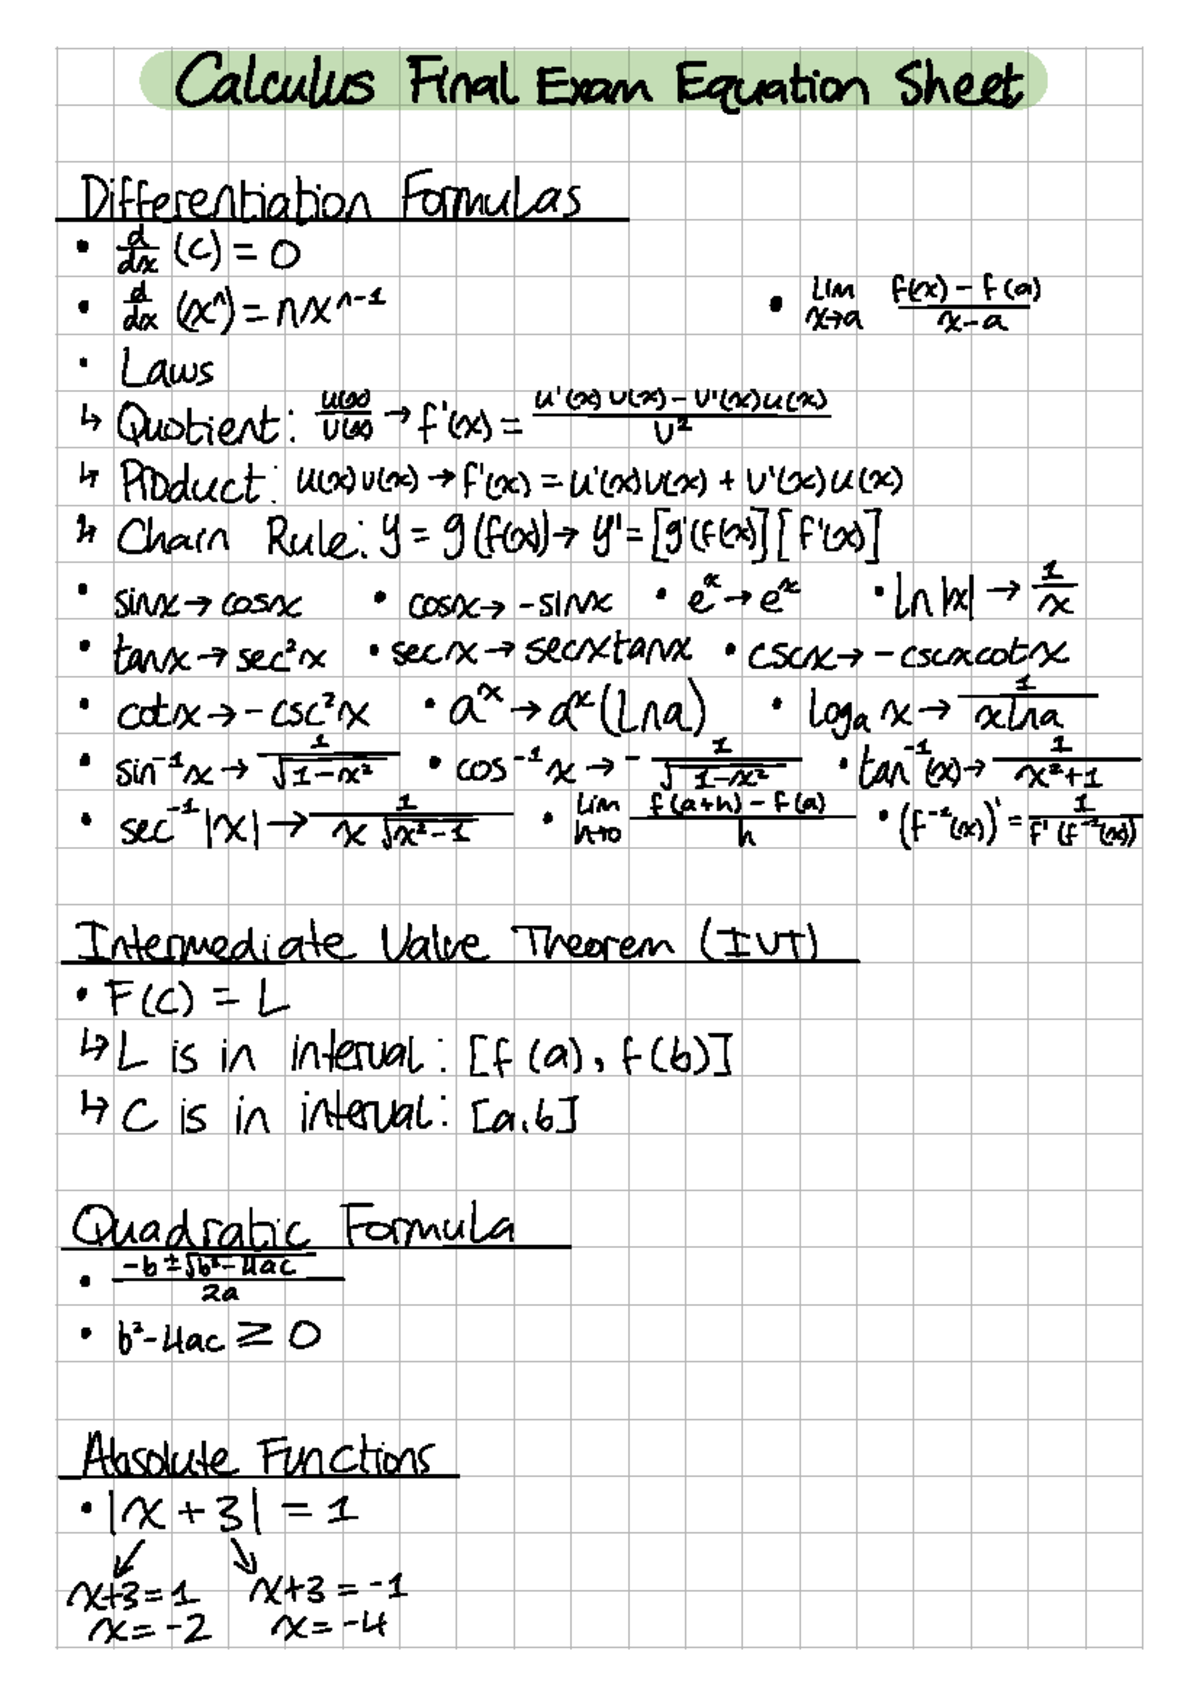 Calculus Final Exam Equation Sheet
Differentiation Formulas
• d/dx (c) = 0
• d/dx (x^n) = nx^(n-1) • lim x→a (f(x) - f(a))/(x-a)
• Laws
↳ Quotient: u(x)/v(x) → f'(x) = (u'(x)v(x) - v'(x)u(x))/v²
↳ Product: u(x)v(x) → f'(x) = u'(x)v(x) + v'(x)u(x)
↳ Chain Rule: y = g(f(x)) → y' = [g'(f(x)][f'(x)]
• sinx → cosx • cosx → -sinx • e^x → e^x • ln|x| → 1/x
• tanx → sec²x • secx → secxtanx • cscx → -cscxcotx
• cotx → -csc²x • a^x → a^x(lna) • log_a x → 1/(xlna)
• sin⁻¹x → 1/√(1-x²) • cos⁻¹x → -1/√(1-x²) • tan⁻¹(x) → 1/(x²+1)
• sec⁻¹|x| → 1/(x√(x²-1)) • lim h→0 (f(a+h) - f(a))/h • (f⁻¹(x))' = 1/(f'(f⁻¹(x)))
Intermediate Value Theorem (IVT)
• F(c) = L
↳ L is in interval: [f(a), f(b)]
↳ C is in interval: [a,b]
Quadratic Formula
• (-b ± √(b²-4ac))/2a
• b²-4ac ≥ 0
Absolute Functions
• |x + 3| = 1
x+3 = 1 x+3 = -1
x = -2 x = -4